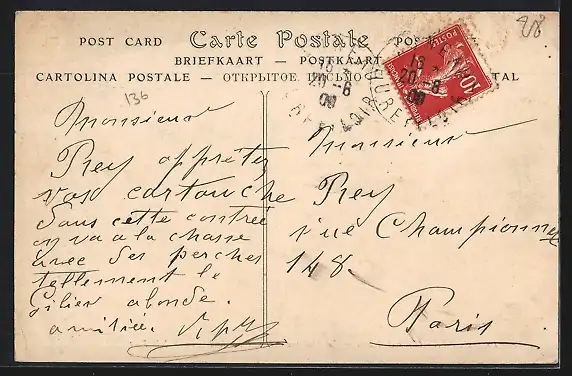 POST CARD Carte Postale
BRIEFKAART — POSTKAART
CARTOLINA POSTALE — ОТКРЫТОЕ ПИСЬМО
136
Monsieur
Rey apprêtez
vos cartouche
dans cette contrée
on va a la chasse
avec des perches
tellement le
Gibier abonde.
amitiés.
Monsieur
Rey
rue Championnet
148
Paris
20 - 8
POSTES
10
20 - 8